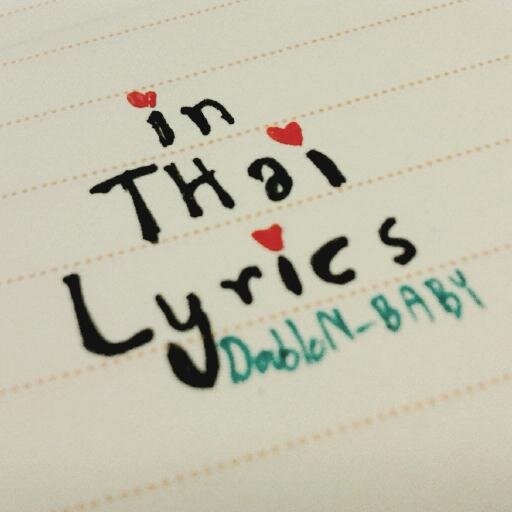 in
THai
Lyrics
DoubleN-BABY